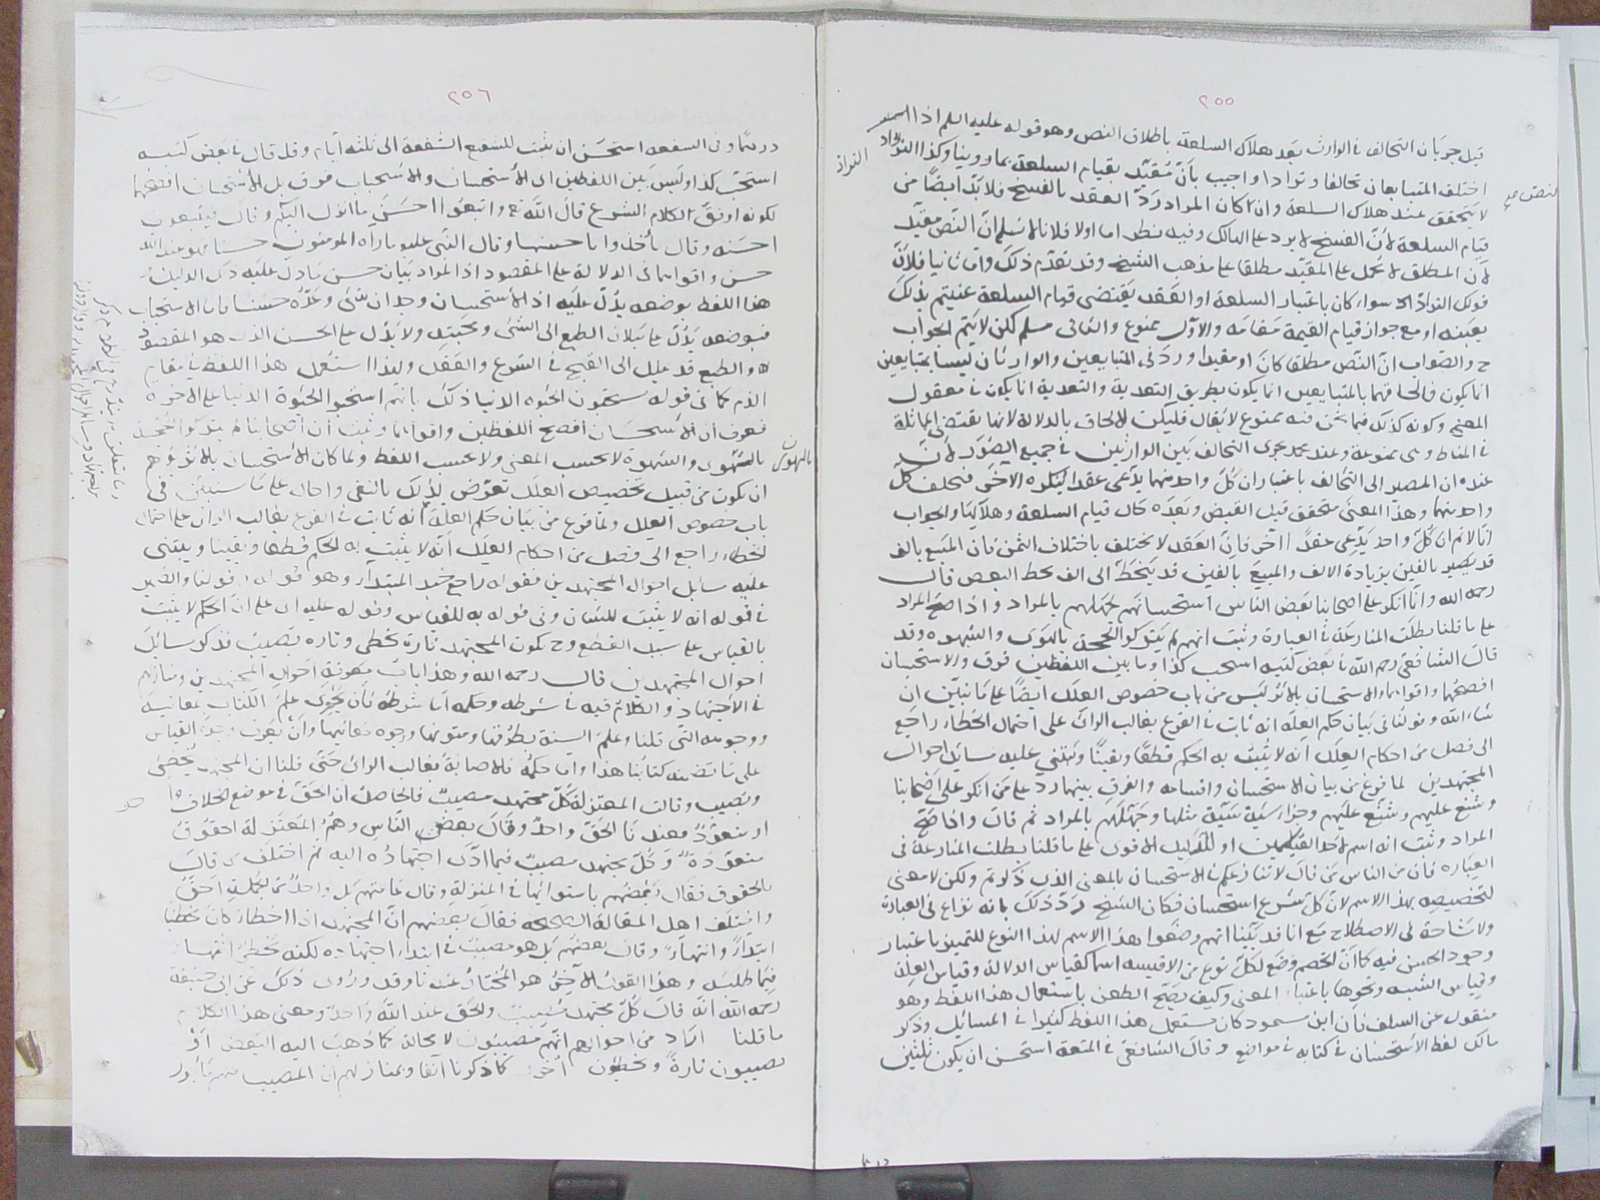 ٢٥٥
قبل جريان التحالف في الوارث بعد هلاك السلعة باطلاق النص وهو قوله عليه السلم اذا
اختلف المتبايعان تحالفا وترادا واجيب بان مقيد بقيام السلعة بما روينا وكذا التراد
لا يتحقق عند هلاك السلعة وان كان المراد رد العقد بالفسخ فلا بد ايضا من
قيام السلعة لان الفسخ لا يرد على الهالك وفيه نظر اما اولا فلانا لا نسلم ان النص مقيد
لان المطلق لا يحمل على المقيد مطلقا على مذهب الشيخ وقد تقدم ذلك واما ثانيا فلان
قولك التراد سواء كان باعتبار السلعة او العقد يقتضي قيام السلعة عنيتم بذلك
بعينه او مع جواز قيام القيمة مقامه والاول ممنوع والثاني مسلم لكن لا يتم الجواب
ح والصواب ان النص مطلقا كان او مقيدا ورد في المتبايعين والوارثان ليسا بمتبايعين
انما يكون بطريق التعدية والتعدية انما يكون في معقول
المعنى وكونه كذلك فيما نحن فيه ممنوع لا يقال فليكن الالحاق بالدلالة لانها يقتضي المماثلة
في المناط وهي ممنوعة وعند محمد يجري التحالف بين الوارثين في جميع الصور لان
عنده ان المصير الى التحالف باعتبار ان كل واحد منهما يدعي عقدا ينكره الاخر فيحلف كل
واحد منهما وهذا المعنى متحقق قبل القبض وبعده حال قيام السلعة وهلاكها والجواب
انا لا نم ان كل واحد يدعي عقدا اخر فان العقد لا يختلف باختلاف الثمن فان المبيع بالف
قد يصير بالفين بزيادة الالف والمبيع بالفين قد ينحط الى الف بحط البعض قال
رحمه الله وانما انكر على اصحابنا بعض الناس استحسانهم لجهلهم بالمراد واذا صح المراد
على ما قلنا بطلت المنازعة في العبارة وثبت انهم لم يتركوا الحجة بالهوى والشهوة وقد
قال الشافعي رحمه الله في بعض كتبه استحب كذا وما بين اللفظين فرق والاستحسان
افصحهما واقواهما والاستحسان بالاثر ليس من باب خصوص العلل ايضا على ما نبين ان
شاء الله وقولنا في بيان حكم العلة انه ثابت في الفرع بغالب الراي على احتمال الخطاء راجع
الى فصل من احكام العلل انه لا يثبت به الحكم قطعا ويقينا ويبتني عليه مسايل احوال
المجتهدين لما فرغ من بيان الاستحسان واقسامه والفرق بينها رد على من انكر على اصحابنا
وشنع عليهم وجزاء سيئة سيئة مثلها وجهلهم بالمراد ثم قال واذا صح
المراد وثبت انه اسم لاحد القياسين او للدليل الاقوى على ما قلنا بطلت المنازعة في
العبارة فان من الناس من قال لا تنازعكم في الاستحسان بالمعنى الذي ذكرتم ولكن لا معنى
لتخصيصه بهذا الاسم لان كل شرع استحسان فكان الشيخ رد ذلك بانه نزاع في العبارة
ولا مشاحة في الاصطلاح مع انا قد بينا انهم وضعوا هذا الاسم لهذا النوع للتمييز باعتبار
وجود الحسن فيه كما ان الخصم وضع لكل نوع من الاقيسة اسما كقياس الدلالة وقياس العلة
وقياس الشبه ونحوها باعتبار المعنى وكيف يصح الطعن باستعمال هذا اللفظ وهو
منقول عن السلف فان ابن مسعود كان يستعمل هذا اللفظ كثيرا في المسائل وذكر
مالك لفظ الاستحسان في كتابه في مواضع وقال الشافعي في المتعة استحسن ان يكون ثلثين
٢٥٦
درهما وفي الشفعة استحسن ان يثبت للشفيع الشفعة الى ثلثة ايام وقد قال في بعض كتبه
استحب كذا وليس بين اللفظين اي الاستحسان والاستحباب فرق بل الاستحسان افصحهما
لكونه اوفق لكلام الشرع قال الله تعالى واتبعوا احسن ما انزل اليكم وقال فيتبعون
احسنه وقال ياخذوا باحسنها وقال النبي عليه ما رآه المؤمنون حسنا فهو عند الله
حسن واقواهما في الدلالة على المقصود اذ المراد بيان حسن ما دل عليه ذلك الدليل
هذا اللفظ بوضعه يدل عليه اذ الاستحسان وجدان شئ وعده حسنا واما الاستحباب
فبوضعه يدل على ميلان الطبع الى الشئ ومحبته ولا يدل على الحسن الذي هو المقصود
والطبع قد يميل الى القبيح في الشرع والعقل ولهذا استعمل هذا اللفظ في مقام
الذم كما في قوله يستحبون الحيوة الدنيا ذلك بانهم استحبوا الحيوة الدنيا على الاخرة
فعرف ان الاستحسان افصح اللفظين واقواهما وثبت ان اصحابنا لم يتركوا الحجة
بالهوى والشهوة لا بحسب المعنى ولا بحسب اللفظ ولما كان الاستحسان بالاثر يوهم
ان يكون من قبيل تخصيص العلل تعرض لذلك بالنفي واحال على ما سنبين في
باب خصوص العلل ولما فرغ من بيان حكم العلة انه ثابت في الفرع بغالب الراي على احتمال
الخطاء راجع الى فصل من احكام العلل انه لا يثبت به الحكم قطعا ويقينا ويبتني
عليه مسايل احوال المجتهدين فقوله راجع خبر المبتدا وهو قوله وقولنا والضمير
في قوله انه لا يثبت للشان وفي قوله به للقياس وقوله عليه اي على ان الحكم لا يثبت
بالقياس على سبيل القطع وح يكون المجتهد تارة يخطي وتارة يصيب فذكر مسائل
احوال المجتهدين قال رحمه الله وهذا باب معرفة احوال المجتهدين ومنازلهم
في الاجتهاد والكلام فيه في شرطه وحكمه اما شرطه فان يحوي علم الكتاب بمعانيه
ووجوهه التي قلنا وعلم السنة بطرقها ومتونها ووجوه معانيها وان يعرف وجوه القياس
على ما تضمنه كتابنا هذا واما حكمه فالاصابة بغالب الراي حتى قلنا ان المجتهد يخطئ
ويصيب وقالت المعتزلة كل مجتهد مصيب فالحاصل ان الحق في موضع الخلاف واحد
او متعدد فعندنا الحق واحد وقال بعض الناس وهم المعتزلة الحقوق
متعددة وكل مجتهد مصيب فيما ادى اجتهاده اليه ثم اختلف من قال
بالحقوق فقال بعضهم باستوائها في المنزلة وقال عامتهم بل واحد من الجملة احق
واختلف اهل المقالة الصحيحة فقال بعضهم ان المجتهد اذا اخطاء كان مخطئا
ابتداء وانتهاء وقال بعضهم بل هو مصيب في ابتداء اجتهاده لكنه مخطئ انتهاء
فيما طلبه وهذا القول الآخر هو المختار عندنا وقد روى ذلك عن ابي حنيفة
رحمه الله انه قال كل مجتهد مصيب والحق عند الله واحد ومعنى هذا الكلام
ما قلنا اراد من احوالهم انهم مصيبون لا محالة كما ذهب اليه البعض او
يصيبون تارة ويخطئون اخرى كما ذكرنا آنفا وبمنازلهم ان المصيب منهم